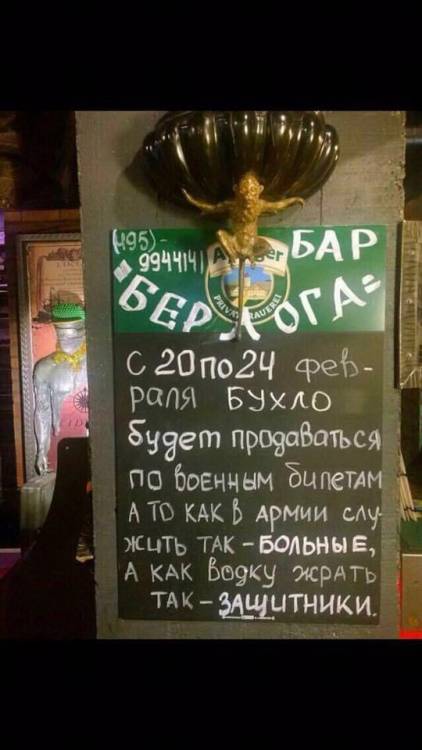 (495)-
9944141
БАР
"БЕРЛОГА"
PRIVATBRAUEREI
С 20 по 24 фев-
раля БУХЛО
будет продаваться
по военным билетам
А ТО КАК В АРМИИ СЛУ-
ЖИТЬ ТАК - БОЛЬНЫЕ,
А КАК Водку ЖРАТЬ
ТАК - ЗАЩИТНИКИ.